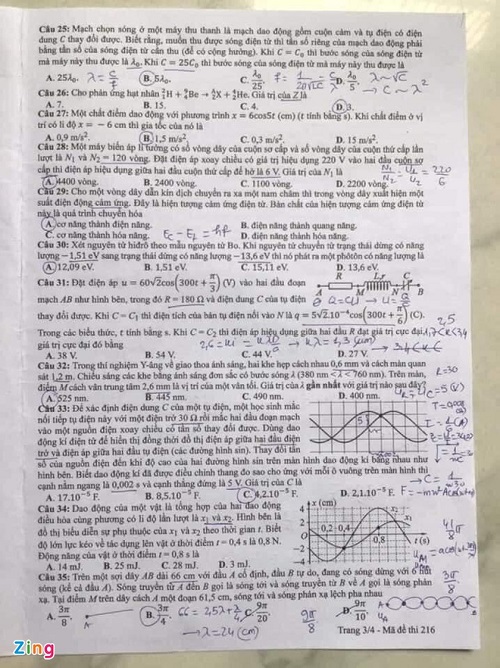 Câu 25: Mạch chọn sóng ở một máy thu thanh là mạch dao động gồm cuộn cảm và tụ điện có điện
dung C thay đổi được. Biết rằng, muốn thu được sóng điện từ thì tần số riêng của mạch dao động phải
bằng tần số của sóng điện từ cần thu (để có cộng hưởng). Khi C = C₀ thì bước sóng của sóng điện từ
mà máy này thu được là λ₀. Khi C = 25C₀ thì bước sóng của sóng điện từ mà máy này thu được là
A. 25λ₀. B. 5λ₀. C. λ₀/25. D. λ₀/5.
Câu 26: Cho phản ứng hạt nhân ²₁H + ⁹₄Be → ᴬ_Z X + ⁴₂He. Giá trị của Z là
A. 7. B. 15. C. 4. D. 3.
Câu 27: Một chất điểm dao động với phương trình x = 6cos5t (cm) (t tính bằng s). Khi chất điểm ở vị
trí có li độ x = − 6 cm thì gia tốc của nó là
A. 0,9 m/s². B. 1,5 m/s². C. 0,3 m/s². D. 15 m/s².
Câu 28: Một máy biến áp lí tưởng có số vòng dây của cuộn sơ cấp và số vòng dây của cuộn thứ cấp lần
lượt là N₁ và N₂ = 120 vòng. Đặt điện áp xoay chiều có giá trị hiệu dụng 220 V vào hai đầu cuộn sơ
cấp thì điện áp hiệu dụng giữa hai đầu cuộn thứ cấp để hở là 6 V. Giá trị của N₁ là
A. 4400 vòng. B. 2400 vòng. C. 1100 vòng. D. 2200 vòng.
Câu 29: Cho một vòng dây dẫn kín dịch chuyển ra xa một nam châm thì trong vòng dây xuất hiện một
suất điện động cảm ứng. Đây là hiện tượng cảm ứng điện từ. Bản chất của hiện tượng cảm ứng điện từ
này là quá trình chuyển hóa
A. cơ năng thành điện năng. B. điện năng thành quang năng.
C. cơ năng thành hóa năng. D. điện năng thành hóa năng.
Câu 30: Xét nguyên tử hiđrô theo mẫu nguyên tử Bo. Khi nguyên tử chuyển từ trạng thái dừng có năng
lượng −1,51 eV sang trạng thái dừng có năng lượng −13,6 eV thì nó phát ra một phôtôn có năng lượng là
A. 12,09 eV. B. 1,51 eV. C. 15,11 eV. D. 13,6 eV.
Câu 31: Đặt điện áp u = 60√2cos(300t + π/3) (V) vào hai đầu đoạn
mạch AB như hình bên, trong đó R = 180 Ω và điện dung C của tụ điện
thay đổi được. Khi C = C₁ thì điện tích của bản tụ điện nối vào N là q = 5√2.10⁻⁴cos(300t + π/6) (C).
Trong các biểu thức, t tính bằng s. Khi C = C₂ thì điện áp hiệu dụng giữa hai đầu R đạt giá trị cực đại,
giá trị cực đại đó bằng
A. 38 V. B. 54 V. C. 44 V. D. 27 V.
Câu 32: Trong thí nghiệm Y-âng về giao thoa ánh sáng, hai khe hẹp cách nhau 0,6 mm và cách màn quan
sát 1,2 m. Chiếu sáng các khe bằng ánh sáng đơn sắc có bước sóng λ (380 nm < λ < 760 nm). Trên màn,
điểm M cách vân trung tâm 2,6 mm là vị trí của một vân tối. Giá trị của λ gần nhất với giá trị nào sau đây?
A. 525 nm. B. 445 nm. C. 490 nm. D. 400 nm.
Câu 33: Để xác định điện dung C của một tụ điện, một học sinh mắc
nối tiếp tụ điện này với một điện trở 30 Ω rồi mắc hai đầu đoạn mạch
vào một nguồn điện xoay chiều có tần số thay đổi được. Dùng dao
động kí điện tử để hiển thị đồng thời đồ thị điện áp giữa hai đầu điện
trở và điện áp giữa hai đầu tụ điện (các đường hình sin). Thay đổi tần
số của nguồn điện đến khi độ cao của hai đường hình sin trên màn hình dao động kí bằng nhau như
hình bên. Biết dao động kí đã được điều chỉnh thang đo sao cho ứng với mỗi ô vuông trên màn hình thì
cạnh nằm ngang là 0,002 s và cạnh thẳng đứng là 5 V. Giá trị của C là
A. 17.10⁻⁵ F. B. 8,5.10⁻⁵ F. C. 4,2.10⁻⁵ F. D. 2,1.10⁻⁵ F.
Câu 34: Dao động của một vật là tổng hợp của hai dao động
điều hòa cùng phương có li độ lần lượt là x₁ và x₂. Hình bên là
đồ thị biểu diễn sự phụ thuộc của x₁ và x₂ theo thời gian t. Biết
độ lớn lực kéo về tác dụng lên vật ở thời điểm t = 0,4 s là 0,8 N.
Động năng của vật ở thời điểm t = 0,8 s là
A. 14 mJ. B. 25 mJ. C. 28 mJ. D. 3 mJ.
Câu 35: Trên một sợi dây AB dài 66 cm với đầu A cố định, đầu B tự do, đang có sóng dừng với 6 nút
sóng (kể cả đầu A). Sóng truyền từ A đến B gọi là sóng tới và sóng truyền từ B về A gọi là sóng phản
xạ. Tại điểm M trên dây cách A một đoạn 61,5 cm, sóng tới và sóng phản xạ lệch pha nhau
A. 3π/8. B. 3π/4. C. 9π/20. D. 9π/10.
Trang 3/4 - Mã đề thi 216
Zing